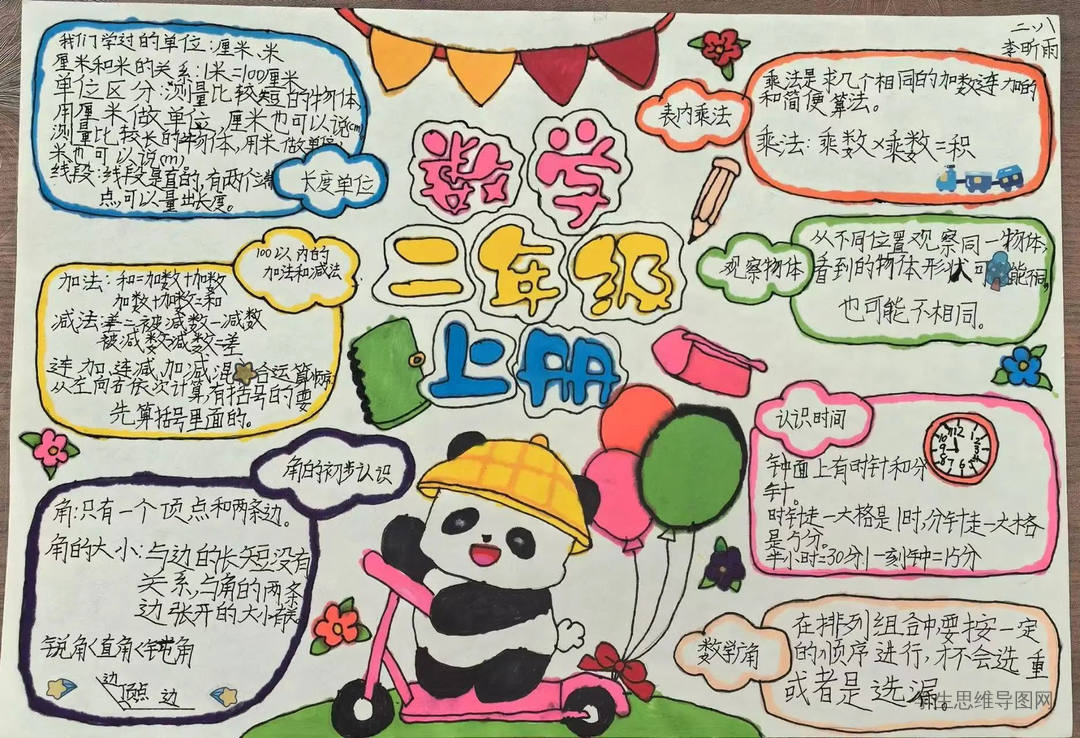 二、八
李昕雨
数学
二年级
上册
我们学过的单位:厘米、米
厘米和米的关系:1米=100厘米
单位区分:测量比较短的物体,
用厘米做单位,厘米也可以说(cm)
测量比较长的物体,用米做单位,
米也可以说(m)
线段:线段是直的,有两个端
点,可以量出长度。
长度单位
100以内的
加法和减法
加法:和=加数+加数
加数+加数=和
减法:差=被减数-减数
被减数-减数=差
连加、连减、加减混合运算都
从左向右依次计算,有括号的要
先算括号里面的。
角的初步认识
角:只有一个顶点和两条边。
角的大小:与边的长短没有
关系,与角的两条
边张开的大小有关。
锐角<直角<钝角
边
顶点 边
表内乘法
乘法是求几个相同的加数连加的
和简便算法。
乘法:乘数×乘数=积
观察物体
从不同位置观察同一物体,
看到的物体形状可能相同。
也可能不相同。
认识时间
12
3
6
9
钟面上有时针和分
针。
时针走一大格是1时,分针走一大格
是5分。
半小时=30分 一刻钟=15分
数学广角
在排列组合中要按一定
的顺序进行,才不会选重
或者是选漏。
生思维导图网